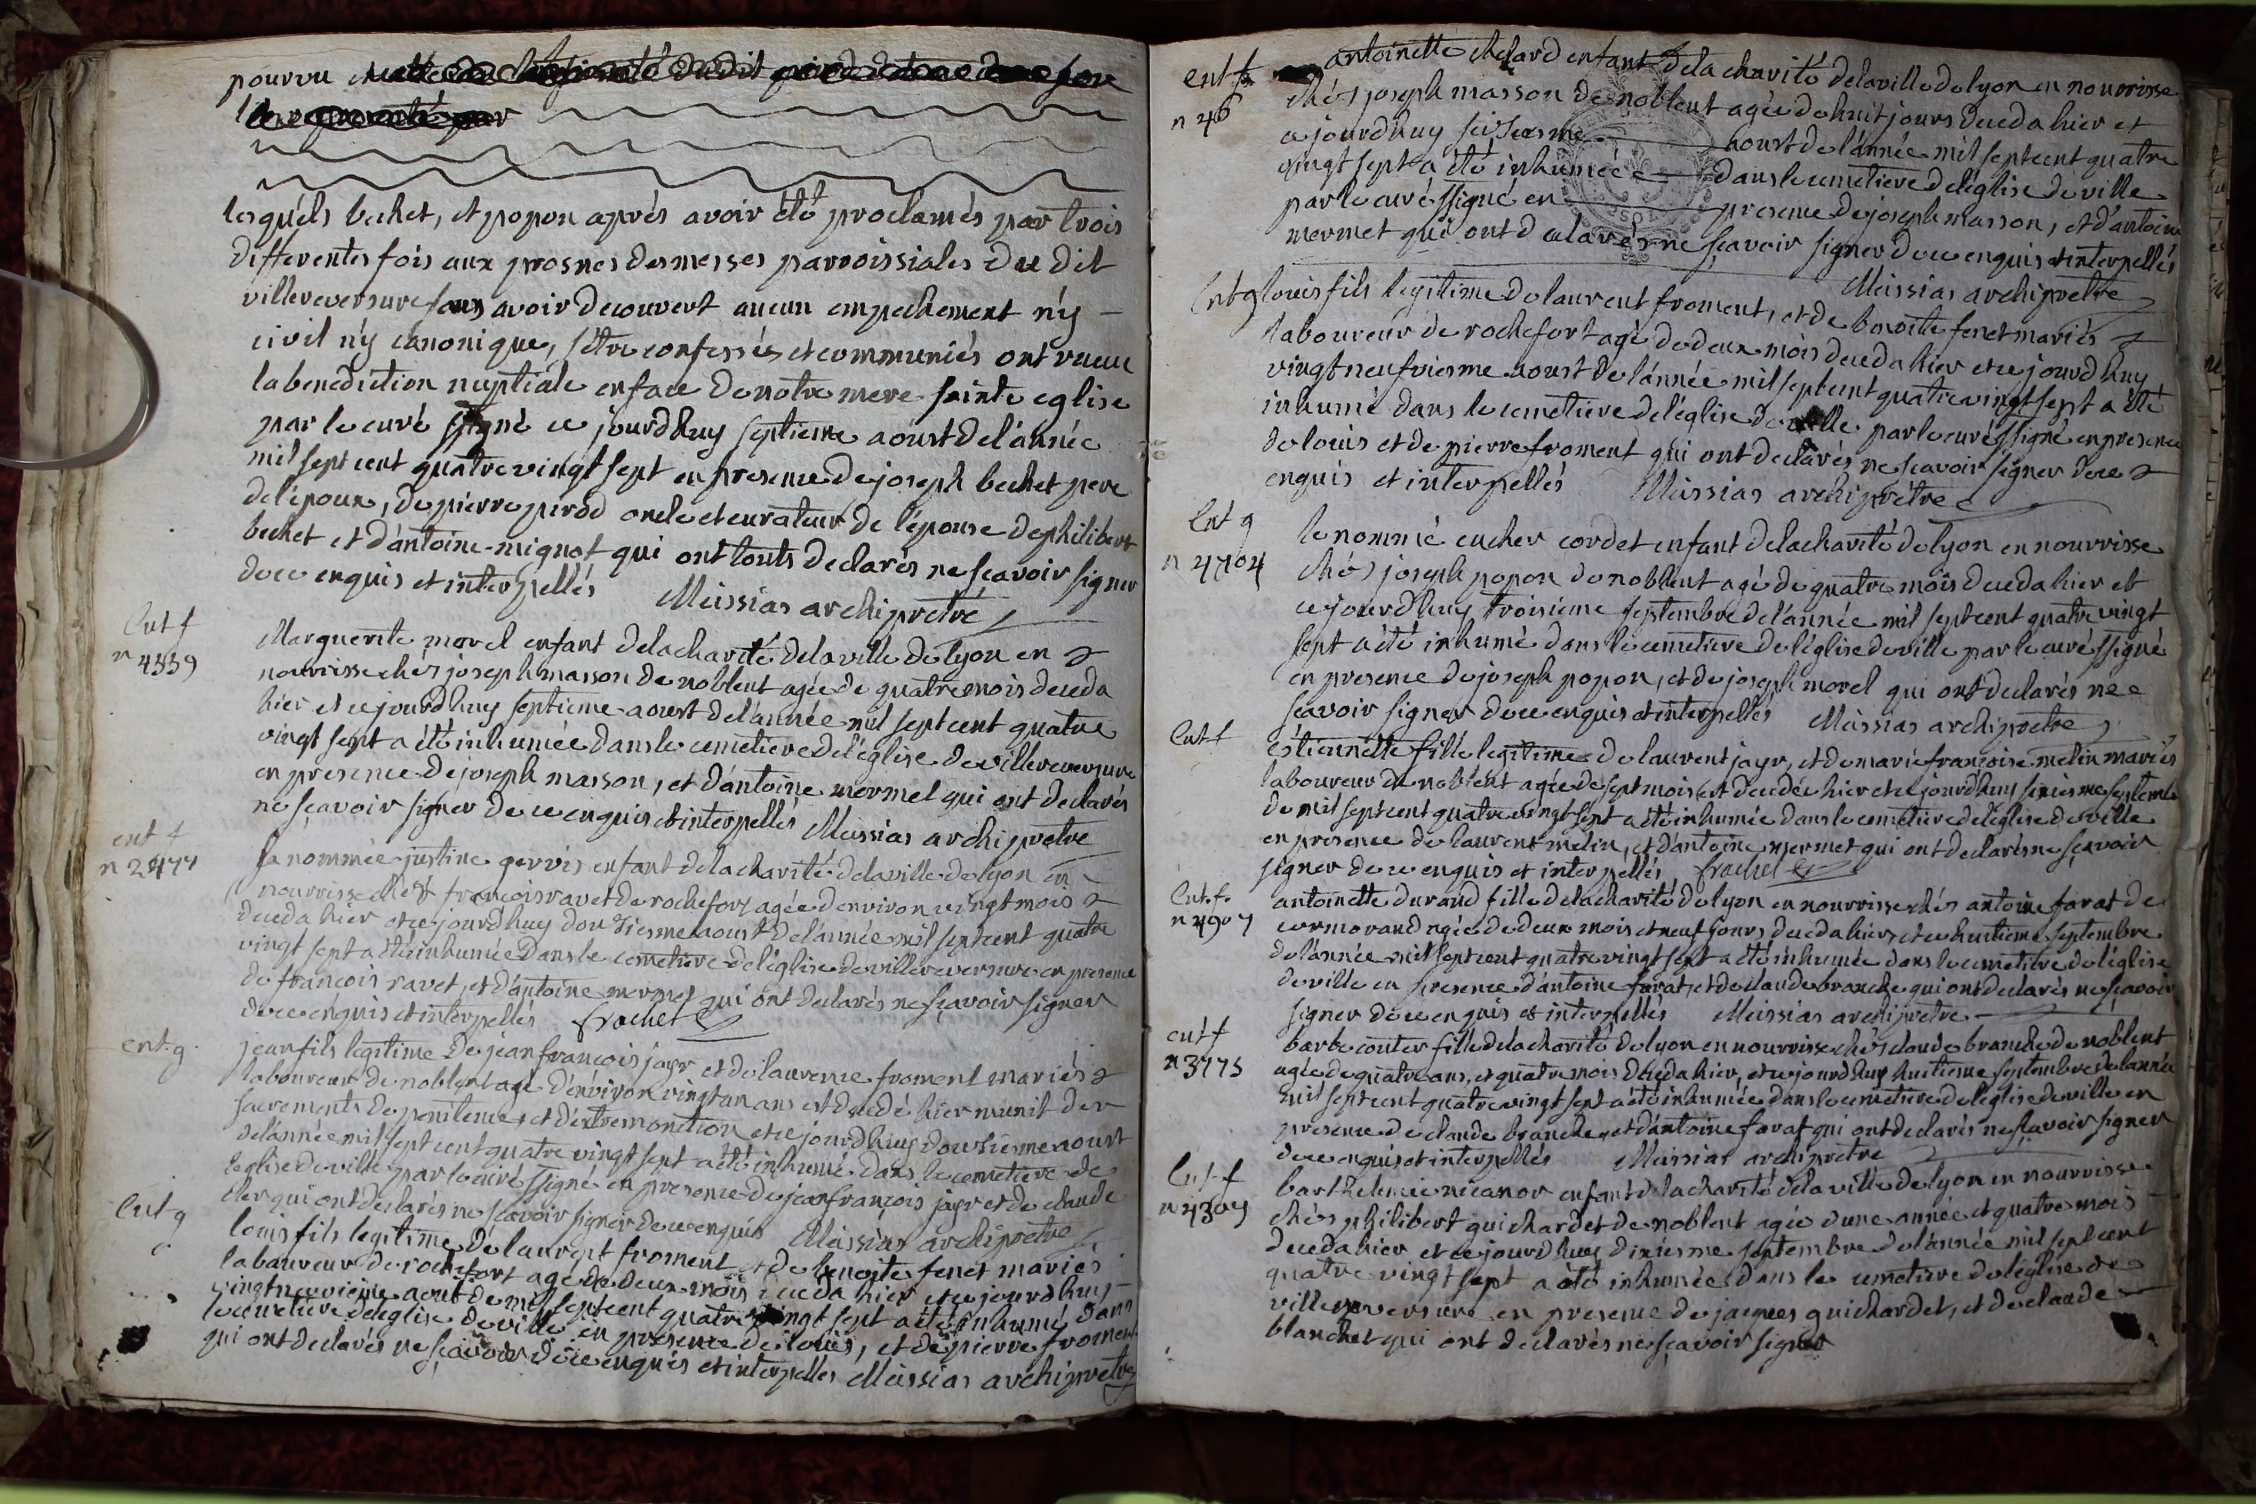 pourvu
lesquéls bechet, et popon aprés avoir été proclamés par trois
differentes fois aux prosnes des messes parroissiales du dit
villereversure sans avoir decouvert aucun empechement n'y
civil n'y canonique, s'être confessés et communiés ont recue
la benediction nuptiale en face de notre mere sainte eglise
par le curé ssigné ce jourdhuy septieme aoust de l'année
mil sept cent quatre vingt sept en presence de joseph bechet pere
de l'époux, de pierre pirod oncle et curateur de l'épouse de philibert
bechet et d'antoine mignot qui ont touts declarés ne scavoir signer
de ce enquis et interpellés Messias archiprêtre
Ent f
n 4339
Marguerite morel enfant de la charité de la ville de lyon en
nourrisse chés joseph masson de noblent agée de quatre mois deceda
hier et ce jourdhuy septieme aoust de l'année mil sept cent quatre
vingt sept a été inhumée dans le cemetiere de l'église de villereversure
en presence de joseph masson, et d'antoine mermet qui ont declarés
ne scavoir signer de ce enquis et interpellés Messias archiprêtre
ent f
n 2477
la nommée justine gervis enfant de la charité de la ville de lyon en
nourrisse chés françois ravet de rochefort agée d'environ vingt mois
deceda hier et ce jourdhuy douziesme aoust de l'année mil sept cent quatre
vingt sept a été inhumée dans le cemetiere de l'église de villereversure en presence
de françois ravet, et d'antoine mermet qui ont declarés ne sçavoir signer
de ce enquis et interpellés frachet
ent g
jean fils legitime de jean françois jayr et de laurence froment mariés
laboureur de noblent agé d'environ vingt un ans est decedé hier munit des
sacrements de penitence, et d'extremonction et ce jourdhuy douziesme aoust
de l'année mil sept cent quatre vingt sept a été inhumé dans le cemetiere de
l'église de ville par le curé ssigné en presence de jean françois jayr et de claude
cler qui ont declarés ne scavoir signer de ce enquis Messias archiprêtre
Ent g
louis fils legitime de laurent froment et de benoite fenet mariés
laboureur de rochefort agé de deux mois deceda hier et ce jourdhuy
vingt neuvieme aout de mil sept cent quatre vingt sept a été inhumé dans
le cemetiere de l'église de ville en presence de louis, et de pierre froment
qui ont declarés ne sçavoir de ce enquis et interpelles Messias archiprêtre
ent f
n 46
antoinette chelard enfant de la charité de la ville de lyon en nourrisse
chés joseph masson de noblent agée de huit jours deceda hier et
ce jourdhuy seiziesme aoust de l'année mil sept cent quatre
vingt sept a été inhumée dans le cemetiere de l'église de ville
par le curé ssigné en presence de joseph masson, et d'antoine
mermet qui ont declarés ne sçavoir signer de ce enquis et interpellés
Messias archiprêtre
Ent g
louis fils legitime de laurent froment, et de benoite fenet mariés
laboureur de rochefort agé de deux mois deceda hier et ce jourdhuy
vingt neufviesme aoust de l'année mil sept cent quatre vingt sept a été
inhumé dans le cemetiere de l'église de ville par le curé ssigné en presence
de louis et de pierre froment qui ont declarés ne scavoir signer de ce
enquis et interpellés Messias archiprêtre
Ent g
n 4704
le nommé eucher cordet enfant de la charité de lyon en nourrisse
chés joseph popon de noblent agé de quatre mois deceda hier et
ce jourdhuy troisieme septembre de l'année mil sept cent quatre vingt
sept a été inhumé dans le cemetiere de l'église de ville par le curé ssigné
en presence de joseph popon, et de joseph morel qui ont declarés ne
scavoir signer de ce enquis et interpellés Messias archiprêtre
Ent f
estiennette fille legitime de laurent jayr, et de marie françoise melin mariés
laboureur de noblent agée de sept mois est decedée hier et ce jourdhuy sixiesme septembre
de mil sept cent quatre vingt sept a été inhumée dans le cemetiere de l'église de ville
en presence de laurent melin, et d'antoine mermet qui ont declarés ne sçavoir
signer de ce enquis et interpellés frachet
Ent f
n 4907
antoinette durand fille de la charité de lyon en nourrisse chés antoine farat de
cormorand agée de deux mois et neuf jours deceda hier, et ce huitieme septembre
de l'année mil sept cent quatre vingt sept a été inhumée dans le cemetiere de l'église
de ville en presence d'antoine farat, et de claude branche qui ont declarés ne scavoir
signer de ce enquis et interpellés Messias archiprêtre
ent f
n 3775
barbe couter fille de la charité de lyon en nourrisse chés claude branche de noblent
agée de quatre ans, et quatre mois deceda hier, et ce jourdhuy huitieme septembre de l'année
mil sept cent quatre vingt sept a été inhumée dans le cemetiere de l'église de ville en
presence de claude branche, et d'antoine farat qui ont declarés ne scavoir signer
de ce enquis et interpellés Messias archiprêtre
Ent f
n 4309
barthelemie nicanor enfant de la charité de la ville de lyon en nourrisse
chés philibert guichardet de noblent agée d'une année et quatre mois
deceda hier et ce jourdhuy dixiesme septembre de l'année mil sept cent
quatre vingt sept a été inhumée dans le cemetiere de l'église de
villereversure en presence de jacques guichardet, et de claude
blanchet qui ont declarés ne sçavoir signer